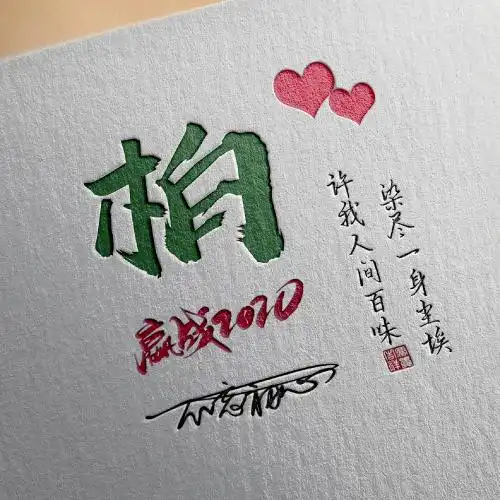 柏
赢战2020
染尽一身尘埃
许我人间百味